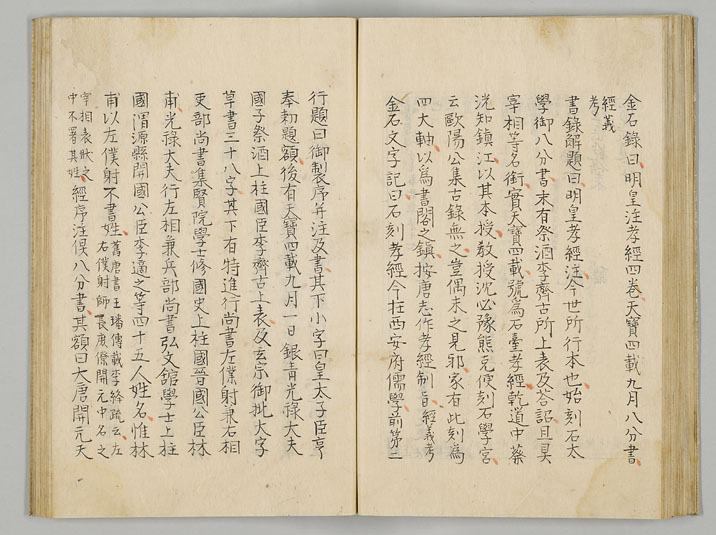 金石錄曰明皇注孝經四卷天寶四載九月八分書
經義
考
書錄解題曰明皇孝經注今世所行本也始刻石太
學御八分書末有祭酒李齊古所上表及荅詔且具
宰相等名銜實天寶四載號為石臺孝經乾道中蔡
洸知鎮江以其本授教授沈必豫熊克使刻石學宮
云歐陽公集古錄無之豈偶未之見邪家有此刻為
四大軸以為書閣之鎮按唐志作孝經制旨經義考
金石文字記曰石刻孝經今在西安府儒學前第二
行題曰御製序并注及書其下小字曰皇太子臣亨
奉勅題額後有天寶四載九月一日銀青光祿大夫
國子祭酒上柱國臣李齊古上表及玄宗御批大字
草書三十八字其下有特進行尚書左僕射兼右相
吏部尚書集賢院學士修國史上柱國晉國公臣林
甫光祿大夫行左相兼兵部尚書弘文館學士上柱
國渭源縣開國公臣李適之等四十五人姓名惟林
甫以左僕射不書姓舊唐書王璠傳載李絳疏云左
右僕射師長庶僚開元中名之
宰相表狀之
中不署其姓經序注俱八分書其額曰大唐開元天